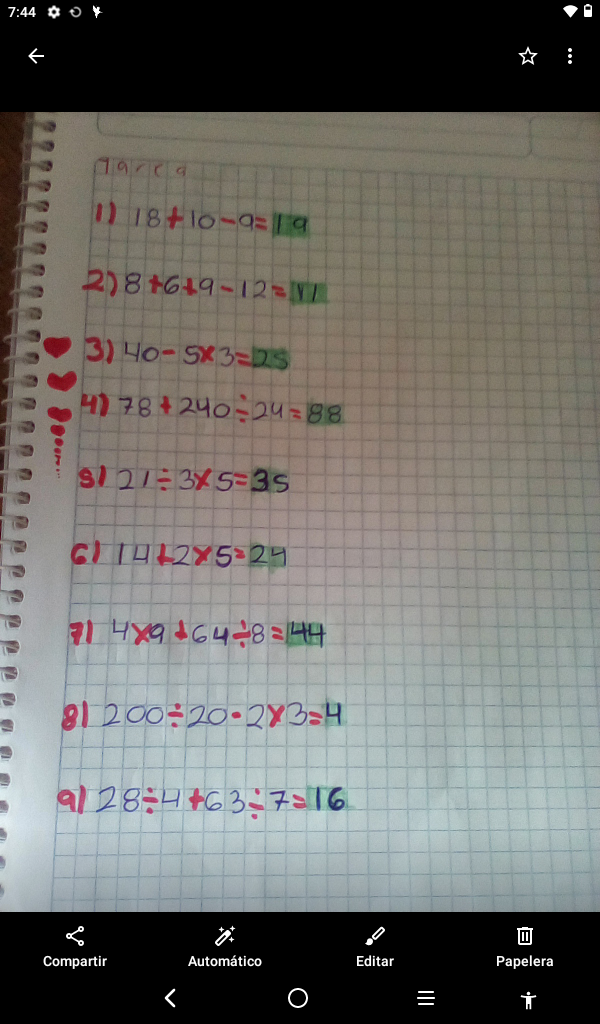 7:44
Tarea
1) 18+10-9=19
2) 8+6+9-12=11
3) 40-5×3=25
4) 78+240÷24=88
5) 21÷3×5=35
6) 14+2×5=24
7) 4×9+64÷8=44
8) 200÷20-2×3=4
9) 28÷4+63÷7=16
Compartir Automático Editar Papelera